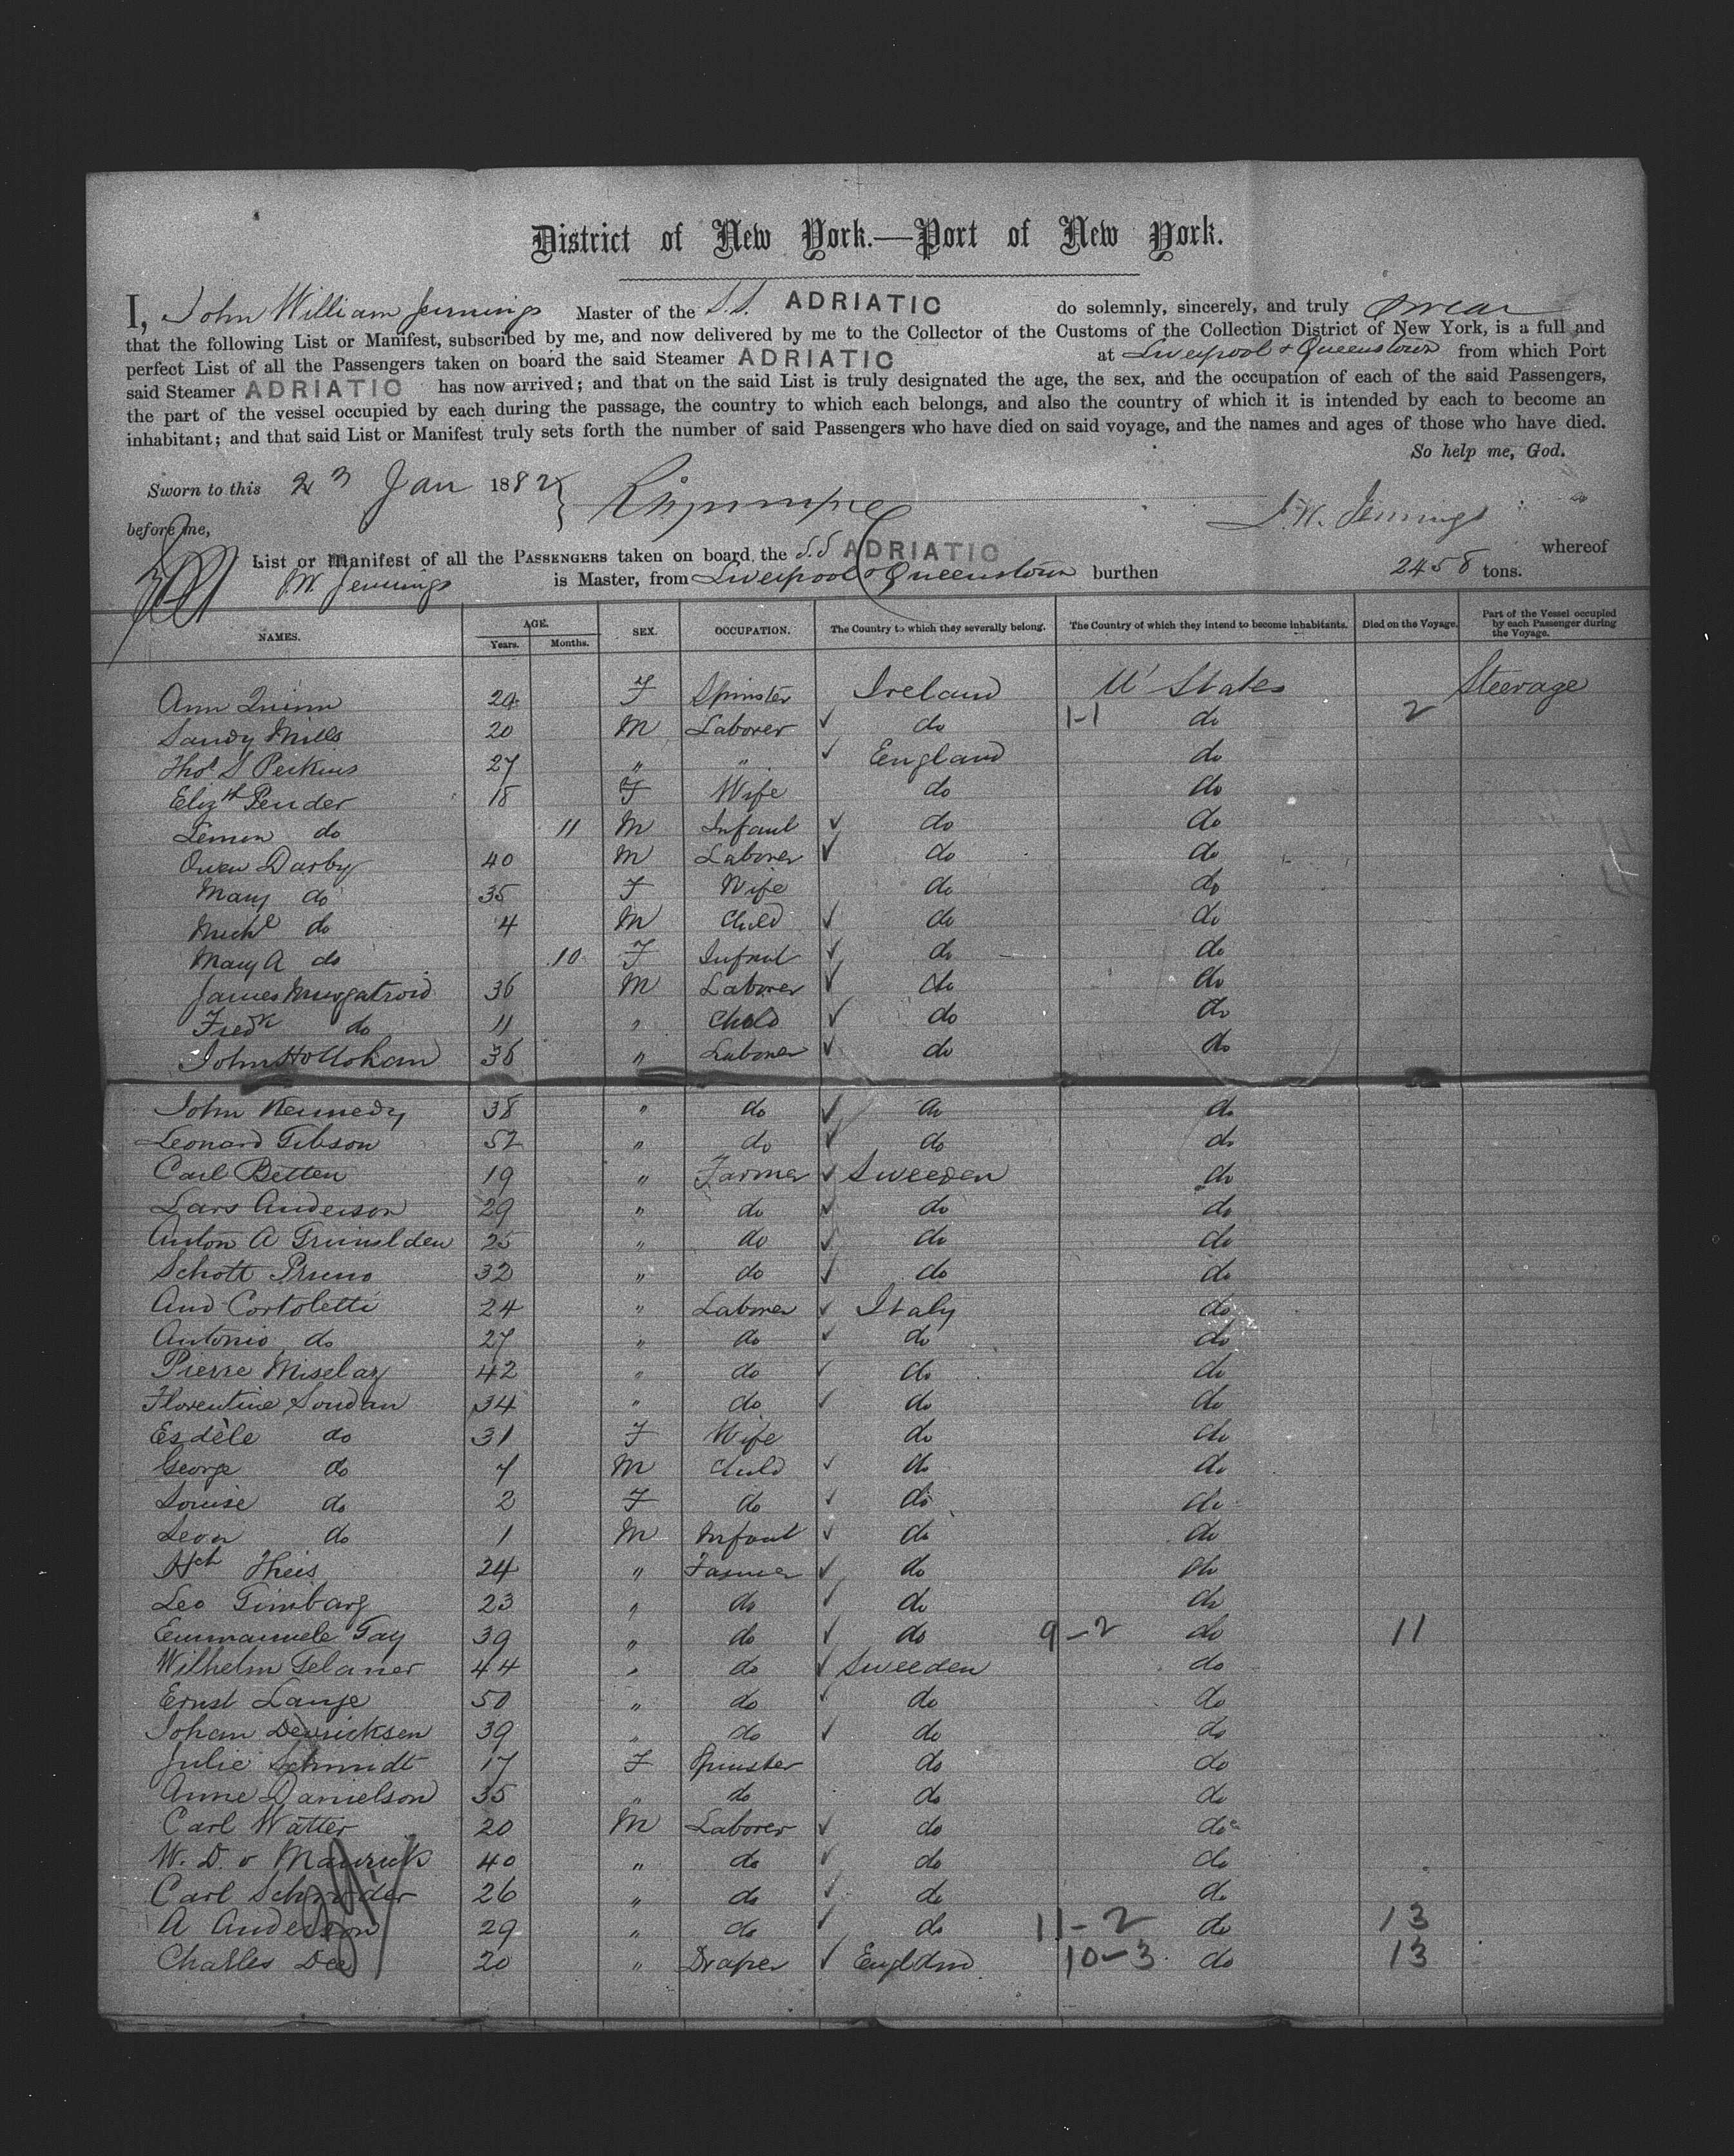 District of New York.—Port of New York.
I, John William Jennings Master of the S.S. ADRIATIC do solemnly, sincerely, and truly swear
that the following List or Manifest, subscribed by me, and now delivered by me to the Collector of the Customs of the Collection District of New York, is a full and
perfect List of all the Passengers taken on board the said Steamer ADRIATIC at Liverpool & Queenstown from which Port
said Steamer ADRIATIC has now arrived; and that on the said List is truly designated the age, the sex, and the occupation of each of the said Passengers,
the part of the vessel occupied by each during the passage, the country to which each belongs, and also the country of which it is intended by each to become an
inhabitant; and that said List or Manifest truly sets forth the number of said Passengers who have died on said voyage, and the names and ages of those who have died.
So help me, God.
Sworn to this 23 Jan 1882
before me, J.W. Jennings
List or Manifest of all the PASSENGERS taken on board the S.S ADRIATIC whereof
J.W. Jennings is Master, from Liverpool & Queenstown burthen 2458 tons.
NAMES. AGE. Years. Months. SEX. OCCUPATION. The Country to which they severally belong. The Country of which they intend to become inhabitants. Died on the Voyage. Part of the Vessel occupied by each Passenger during the Voyage.
Ann Quinn 24 F Spinster Ireland U States Steerage
Sandy Mills 20 M Laborer ✓ do 1-1 do 2
Thos S Perkins 27 " " ✓ England do
Elizth Pender 18 F Wife do do
Lemon do 11 M Infant ✓ do do
Owen Darby 40 M Laborer ✓ do do
Mary do 35 F Wife do do
Michl do 4 M Child ✓ do do
Mary A do 10 F Infant ✓ do do
James Murgatroid 36 M Laborer ✓ do do
Fredk do 11 " Child ✓ do do
John Hollohan 36 " Laborer ✓ do do
John Kennedy 38 " do ✓ do do
Leonard Gibson 52 " do ✓ do do
Carl Betten 19 " Farmer ✓ Sweeden do
Lars Anderson 29 " do ✓ do do
Anton A Grunslden 25 " do ✓ do do
Schott Pruno 32 " do ✓ do do
And Cortoletti 24 " Laborer ✓ Italy do
Antonio do 27 " do ✓ do do
Pierre Miselaz 42 " do ✓ do do
Florentine Soudan 34 " do ✓ do do
Esdèle do 31 F Wife do do
George do 7 M Child ✓ do do
Louise do 2 F do ✓ do do
Leon do 1 M Infant ✓ do do
Hch Theis 24 " Farmer ✓ do do
Leo Gimbarg 23 " do ✓ do do
Emmanuele Gay 39 " do ✓ do 9-2 do 11
Wilhelm Gelaner 44 " do ✓ Sweeden do
Ernst Lange 50 " do ✓ do do
Johan Dedricksen 39 " do ✓ do do
Julie Schmidt 17 F Spinster do do
Anne Danielson 35 " do do do
Carl Watter 20 M Laborer ✓ do do
W. D. v Maurick 40 " do ✓ do do
Carl Schroder 26 " do ✓ do do
A Anderson 29 " do ✓ do 11-2 do 13
Charles Dee 20 " Draper ✓ England 10-3 do 13